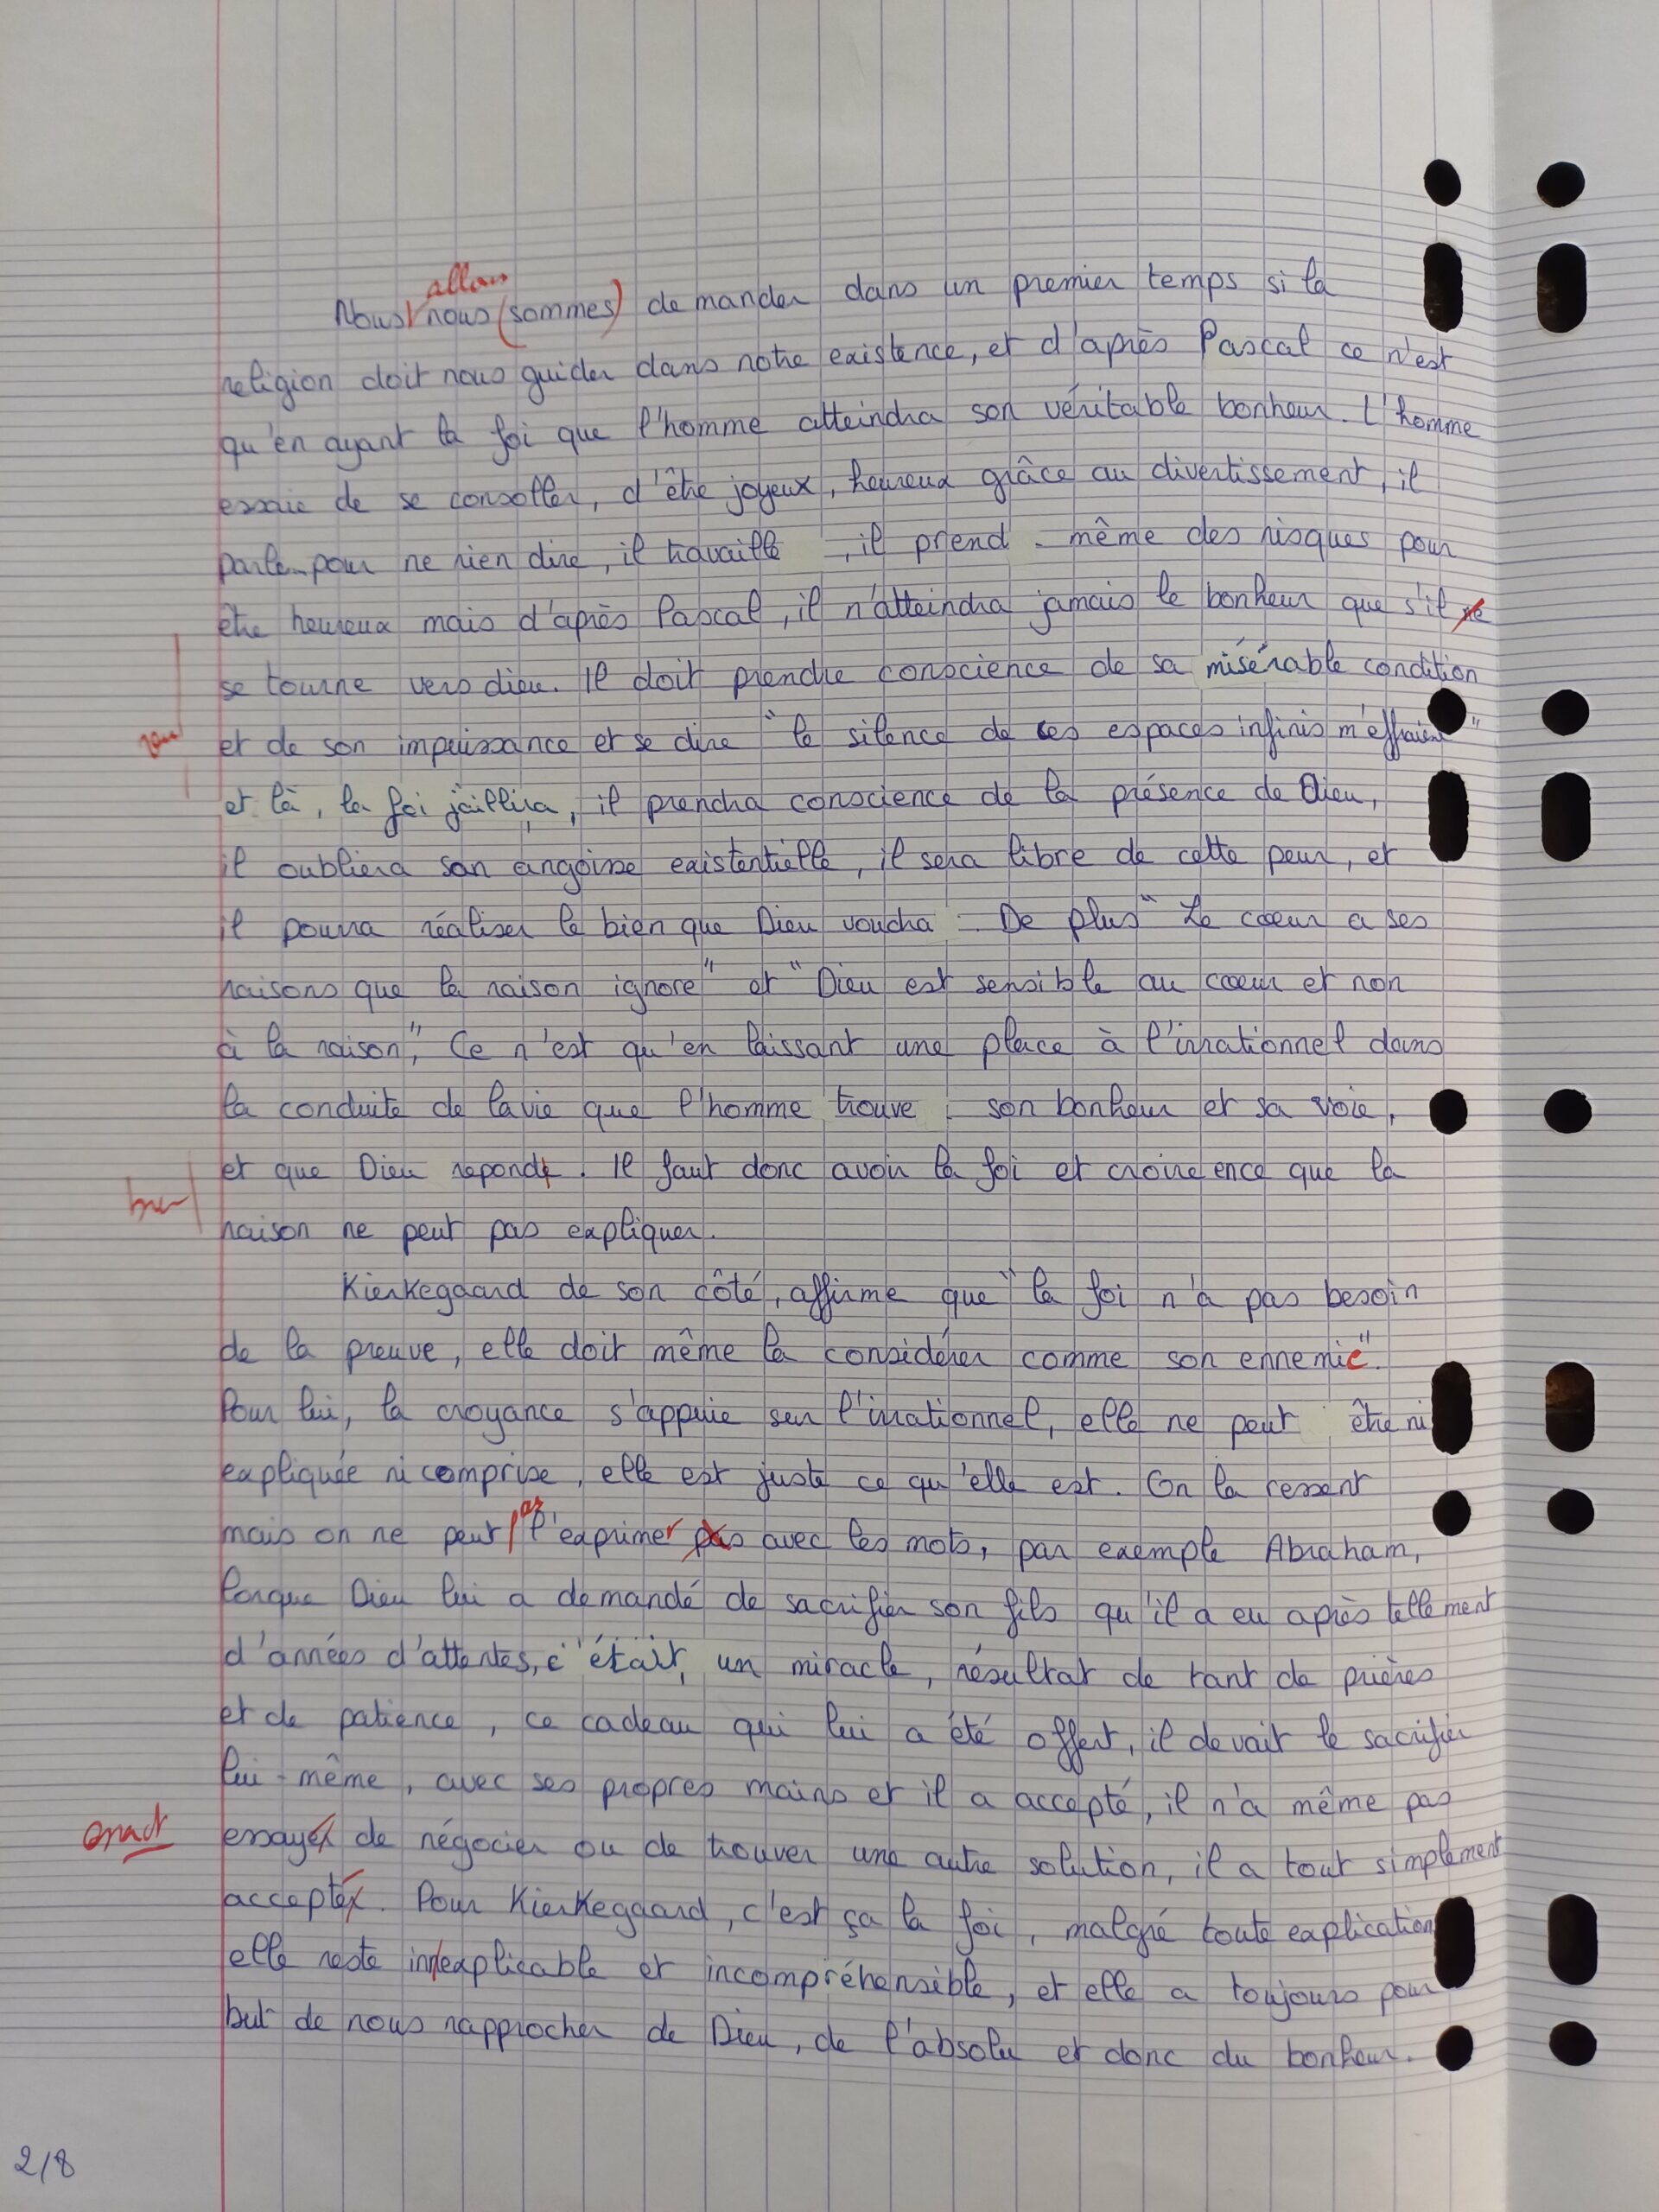 allons
Nous nous (sommes) demander dans un premier temps si la
religion doit nous guider dans notre existence, et d'après Pascal ce n'est
qu'en ayant la foi que l'homme atteindra son véritable bonheur. L'homme
essaie de se consoller, d'être joyeux, heureux grâce au divertissement, il
parle pour ne rien dire, il travaille, il prend même des risques pour
être heureux mais d'après Pascal, il n'atteindra jamais le bonheur que s'il ne
se tourne vers dieu. Il doit prendre conscience de sa misérable condition
et de son impuissance et se dire "le silence de ces espaces infinis m'effraient"
et là, la foi jaillira, il prendra conscience de la présence de Dieu,
il oubliera son angoisse existentielle, il sera libre de cette peur, et
il pourra réaliser le bien que Dieu voudra. De plus "Le cœur a ses
raisons que la raison ignore" et "Dieu est sensible au cœur et non
à la raison", Ce n'est qu'en laissant une place à l'irrationnel dans
la conduite de la vie que l'homme trouve son bonheur et sa voie,
et que Dieu repond. Il faut donc avoir la foi et croire en ce que la
bien
raison ne peut pas expliquer.
Kierkegaard de son côté, affirme que "la foi n'a pas besoin
de la preuve, elle doit même la considérer comme son ennemie".
Pour lui, la croyance s'appuie sur l'irrationnel, elle ne peut être ni
expliquée ni comprise, elle est juste ce qu'elle est. On la ressent
mais on ne peut pas l'exprimer pas avec les mots, par exemple Abraham,
lorque Dieu lui a demandé de sacrifier son fils qu'il a eu après tellement
d'années d'attentes, c'était un miracle, résultat de tant de prières
et de patience, ce cadeau qui lui a été offert, il devait le sacrifier
lui-même, avec ses propres mains et il a accepté, il n'a même pas
exact essayé de négocier ou de trouver une autre solution, il a tout simplement
accepté. Pour Kierkegaard, c'est ça la foi, malgré toute explication
elle reste innexplicable et incompréhensible, et elle a toujours pour
but de nous rapprocher de Dieu, de l'absolu et donc du bonheur.
2/8